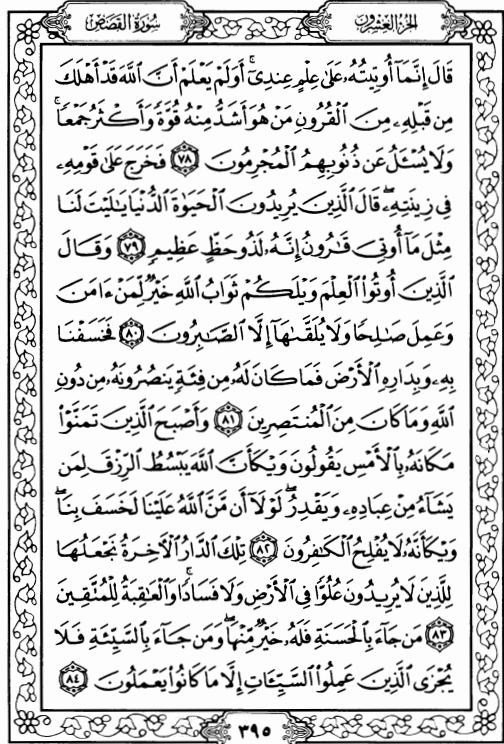 سُورَةُ القَصَصِ الجُزْءُ العِشْرُونَ
قَالَ إِنَّمَآ أُوتِيتُهُۥ عَلَىٰ عِلْمٍ عِندِيٓۚ أَوَلَمْ يَعْلَمْ أَنَّ ٱللَّهَ قَدْ أَهْلَكَ
مِن قَبْلِهِۦ مِنَ ٱلْقُرُونِ مَنْ هُوَ أَشَدُّ مِنْهُ قُوَّةً وَأَكْثَرُ جَمْعًاۚ
وَلَا يُسْـَٔلُ عَن ذُنُوبِهِمُ ٱلْمُجْرِمُونَ ٧٨ فَخَرَجَ عَلَىٰ قَوْمِهِۦ
فِي زِينَتِهِۦۖ قَالَ ٱلَّذِينَ يُرِيدُونَ ٱلْحَيَوٰةَ ٱلدُّنْيَا يَـٰلَيْتَ لَنَا
مِثْلَ مَآ أُوتِيَ قَـٰرُونُ إِنَّهُۥ لَذُو حَظٍّ عَظِيمٍ ٧٩ وَقَالَ
ٱلَّذِينَ أُوتُوا۟ ٱلْعِلْمَ وَيْلَكُمْ ثَوَابُ ٱللَّهِ خَيْرٌ لِّمَنْ ءَامَنَ
وَعَمِلَ صَـٰلِحًا وَلَا يُلَقَّىٰهَآ إِلَّا ٱلصَّـٰبِرُونَ ٨٠ فَخَسَفْنَا
بِهِۦ وَبِدَارِهِ ٱلْأَرْضَ فَمَا كَانَ لَهُۥ مِن فِئَةٍ يَنصُرُونَهُۥ مِن دُونِ
ٱللَّهِ وَمَا كَانَ مِنَ ٱلْمُنتَصِرِينَ ٨١ وَأَصْبَحَ ٱلَّذِينَ تَمَنَّوْا۟
مَكَانَهُۥ بِٱلْأَمْسِ يَقُولُونَ وَيْكَأَنَّ ٱللَّهَ يَبْسُطُ ٱلرِّزْقَ لِمَن
يَشَآءُ مِنْ عِبَادِهِۦ وَيَقْدِرُۖ لَوْلَآ أَن مَّنَّ ٱللَّهُ عَلَيْنَا لَخَسَفَ بِنَاۖ
وَيْكَأَنَّهُۥ لَا يُفْلِحُ ٱلْكَـٰفِرُونَ ٨٢ تِلْكَ ٱلدَّارُ ٱلْـَٔاخِرَةُ نَجْعَلُهَا
لِلَّذِينَ لَا يُرِيدُونَ عُلُوًّا فِي ٱلْأَرْضِ وَلَا فَسَادًاۚ وَٱلْعَـٰقِبَةُ لِلْمُتَّقِينَ
٨٣ مَن جَآءَ بِٱلْحَسَنَةِ فَلَهُۥ خَيْرٌ مِّنْهَاۖ وَمَن جَآءَ بِٱلسَّيِّئَةِ فَلَا
يُجْزَى ٱلَّذِينَ عَمِلُوا۟ ٱلسَّيِّـَٔاتِ إِلَّا مَا كَانُوا۟ يَعْمَلُونَ ٨٤
٣٩٥